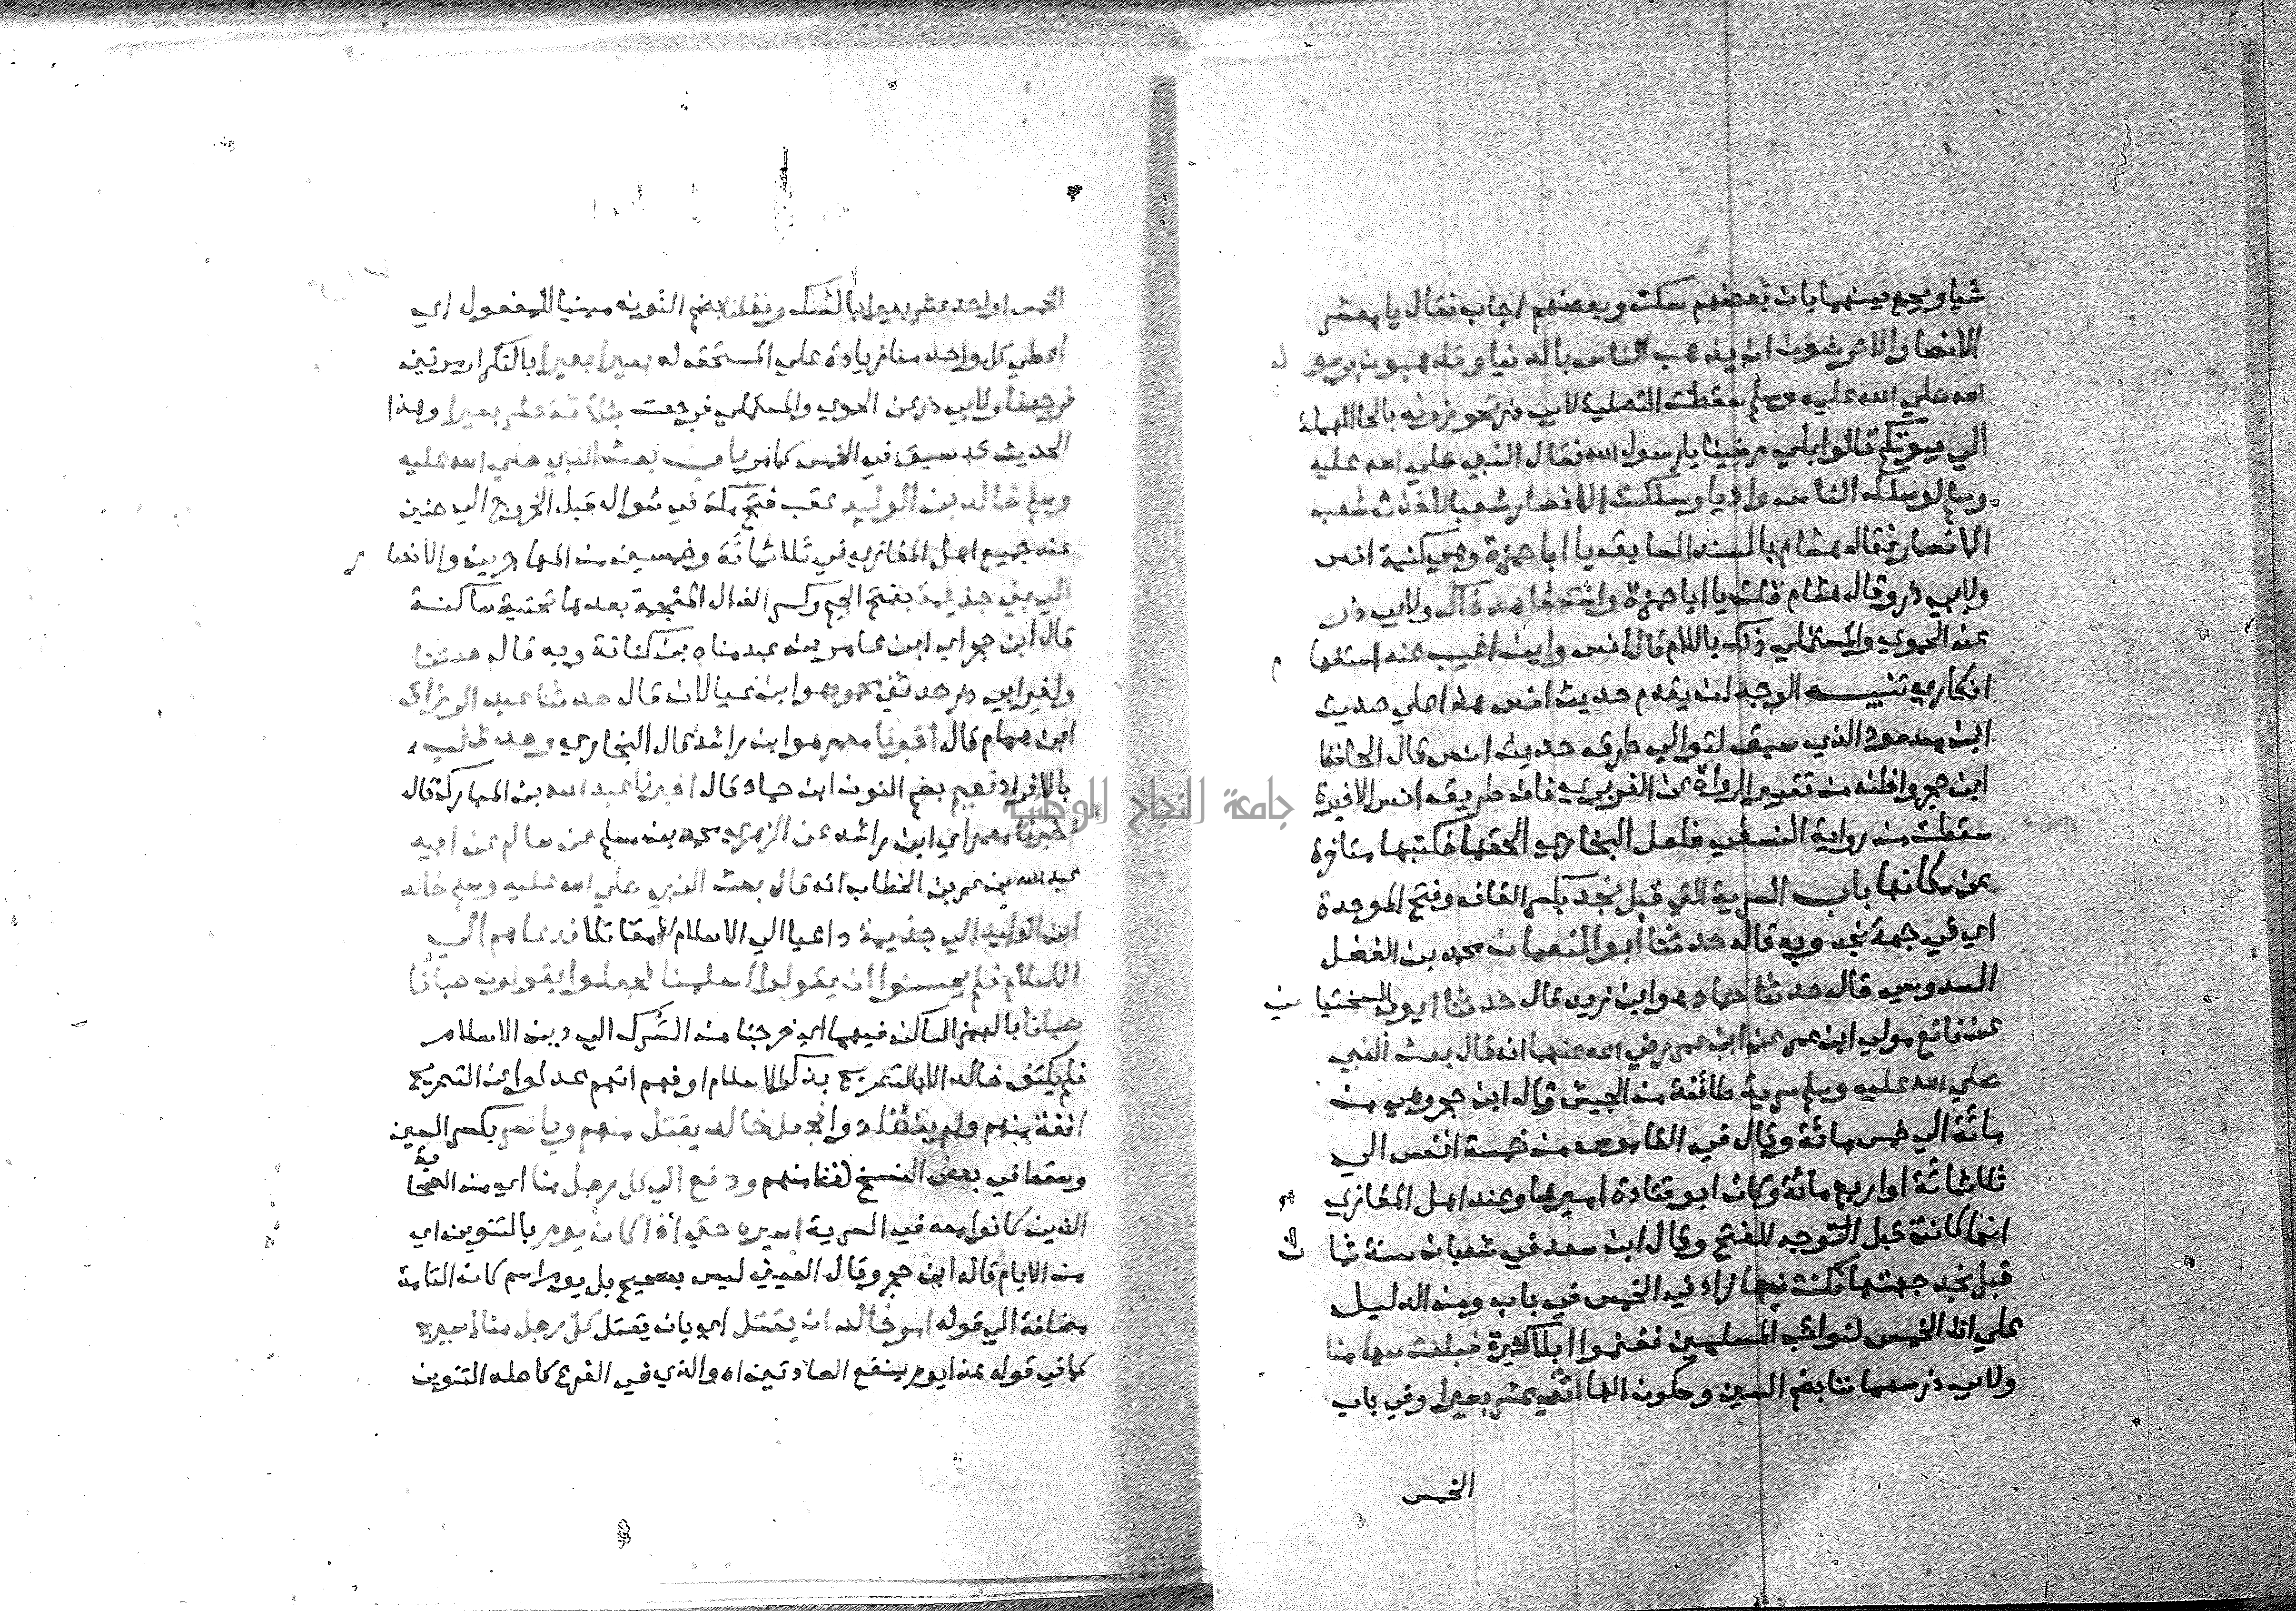 شيا ويجمع بينهما بان بعضهم سكت وبعضهم اجاب فقال يا معشر
الانصار الا ترضون ان يذهب الناس بالدنيا وتذهبون برسول
الله صلي الله عليه وسلم سقطت التصلية لابي ذر تحوزونه بالحا المهملة
الي بيوتكم قالوا بلي رضينا يا رسول الله فقال النبي صلي الله عليه
وسلم لو سلك الناس واديا وسلكت الانصار شعبا لاخذت شعب
الانصار فقال هشام بالسند السابق يا ابا حمزة وهي كنية انس
ولابي ذر وقال هشام قلت يا ابا حمزة وانت شاهد ذاك ولابي ذر
عن الحموي والمستملي ذلك باللام قال انس واين اغيب عنه استفهام
انكاري تنبيه الوجه ان يقدم حديث انس هذا علي حديث
ابن مسعود الذي سبق لتوالي طرق حديث انس قال الحافظ
ابن حجر واظنه من تغيير الرواة عن الفربري فان طريق انس الاخيرة
سقطت من رواية النسفي فلعل البخاري الحقها فكتبها متاخرة
عن مكانها باب السرية التي قبل نجد بكسر القاف وفتح الموحدة
اي في جهة نجد وبه قال حدثنا ابو النعمان محمد بن الفضل
السدوسي قال حدثنا حماد هو ابن زيد قال حدثنا ايوب السختياني
عن نافع مولي ابن عمر عن ابن عمر رضي الله عنهما انه قال بعث النبي
صلي الله عليه وسلم سرية طائفة من الجيش قال ابن حجر وهي من
مائة الي خمس مائة وقال في القاموس من خمسة انفس الي
ثلاثمائة او اربع مائة وكان ابو قتادة اميرها وعند اهل المغازي
انها كانت قبل التوجه للفتح وقال ابن سعد في شعبان سنة ثمان
قبل نجد جهتها فكنت فيها زاد في الخمس في باب ومن الدليل
علي ان الخمس لنوائب المسلمين فغنموا ابلا كثيرة فبلغت سهامنا
ولابي ذر سهماننا بضم السين وسكون الها اثني عشر بعيرا وفي باب
الخمس
الخمس او احد عشر بعيرا بالشك ونفلنا بضم النون مبنيا للمفعول اي
اعطي كل واحد منا زيادة علي المستحق له بعيرا بعيرا بالتكرار مرتين
فرجعنا ولابي ذر عن الحموي والمستملي فرجعت بثلاثة عشر بعيرا وهذا
الحديث قد سبق في الخمس كما مر باب بعث النبي صلي الله عليه
وسلم خالد بن الوليد عقب فتح مكة في شوال قبل الخروج الي حنين
عند جميع اهل المغازي في ثلاثمائة وخمسين من المهاجرين والانصار
الي بني جذيمة بفتح الجيم وكسر الذال المعجمة بعدها تحتية ساكنة
قال ابن حجر اي ابن عامر بن عبد مناه بن كنانة وبه قال حدثنا
ولغير ابي ذر حدثني محمود هو ابن غيلان قال حدثنا عبد الرزاق
ابن همام قال اخبرنا معمر هو ابن راشد قال البخاري وحدثني
بالافراد نعيم بضم النون ابن حماد قال اخبرنا عبد الله بن المبارك قال
اخبرنا معمر اي ابن راشد عن الزهري محمد بن مسلم عن سالم عن ابيه
عبد الله بن عمر بن الخطاب انه قال بعث النبي صلي الله عليه وسلم خالد
ابن الوليد الي جذيمة داعيا الي الاسلام لا مقاتلا فدعاهم الي
الاسلام فلم يحسنوا ان يقولوا اسلمنا فجعلوا يقولون صبانا
صبانا بالهمز الساكن فيهما اي خرجنا من الشرك الي دين الاسلام
فلم يكتف خالد الا بالتصريح بذكر الاسلام او فهم انهم عدلوا عن التصريح
انفة منهم ولم ينقادوا فجعل خالد يقتل منهم وياسر بكسر السين
وسقط في بعض النسخ لفظ منهم ودفع الي كل رجل منا اي من الصحابة
الذين كانوا معه في السرية اسيره حتي اذا كان يوم بالتنوين اي
من الايام قاله ابن حجر وقال العيني ليس بصحيح بل يوم اسم كان التامة
مضافة الي قوله امر خالد ان يقتل اي بان يقتل كل رجل منا اسيره
كما في قوله هذا يوم ينفع الصادقين اه والذي في الفرع كاصله التنوين
جامعة النجاح الوطنية